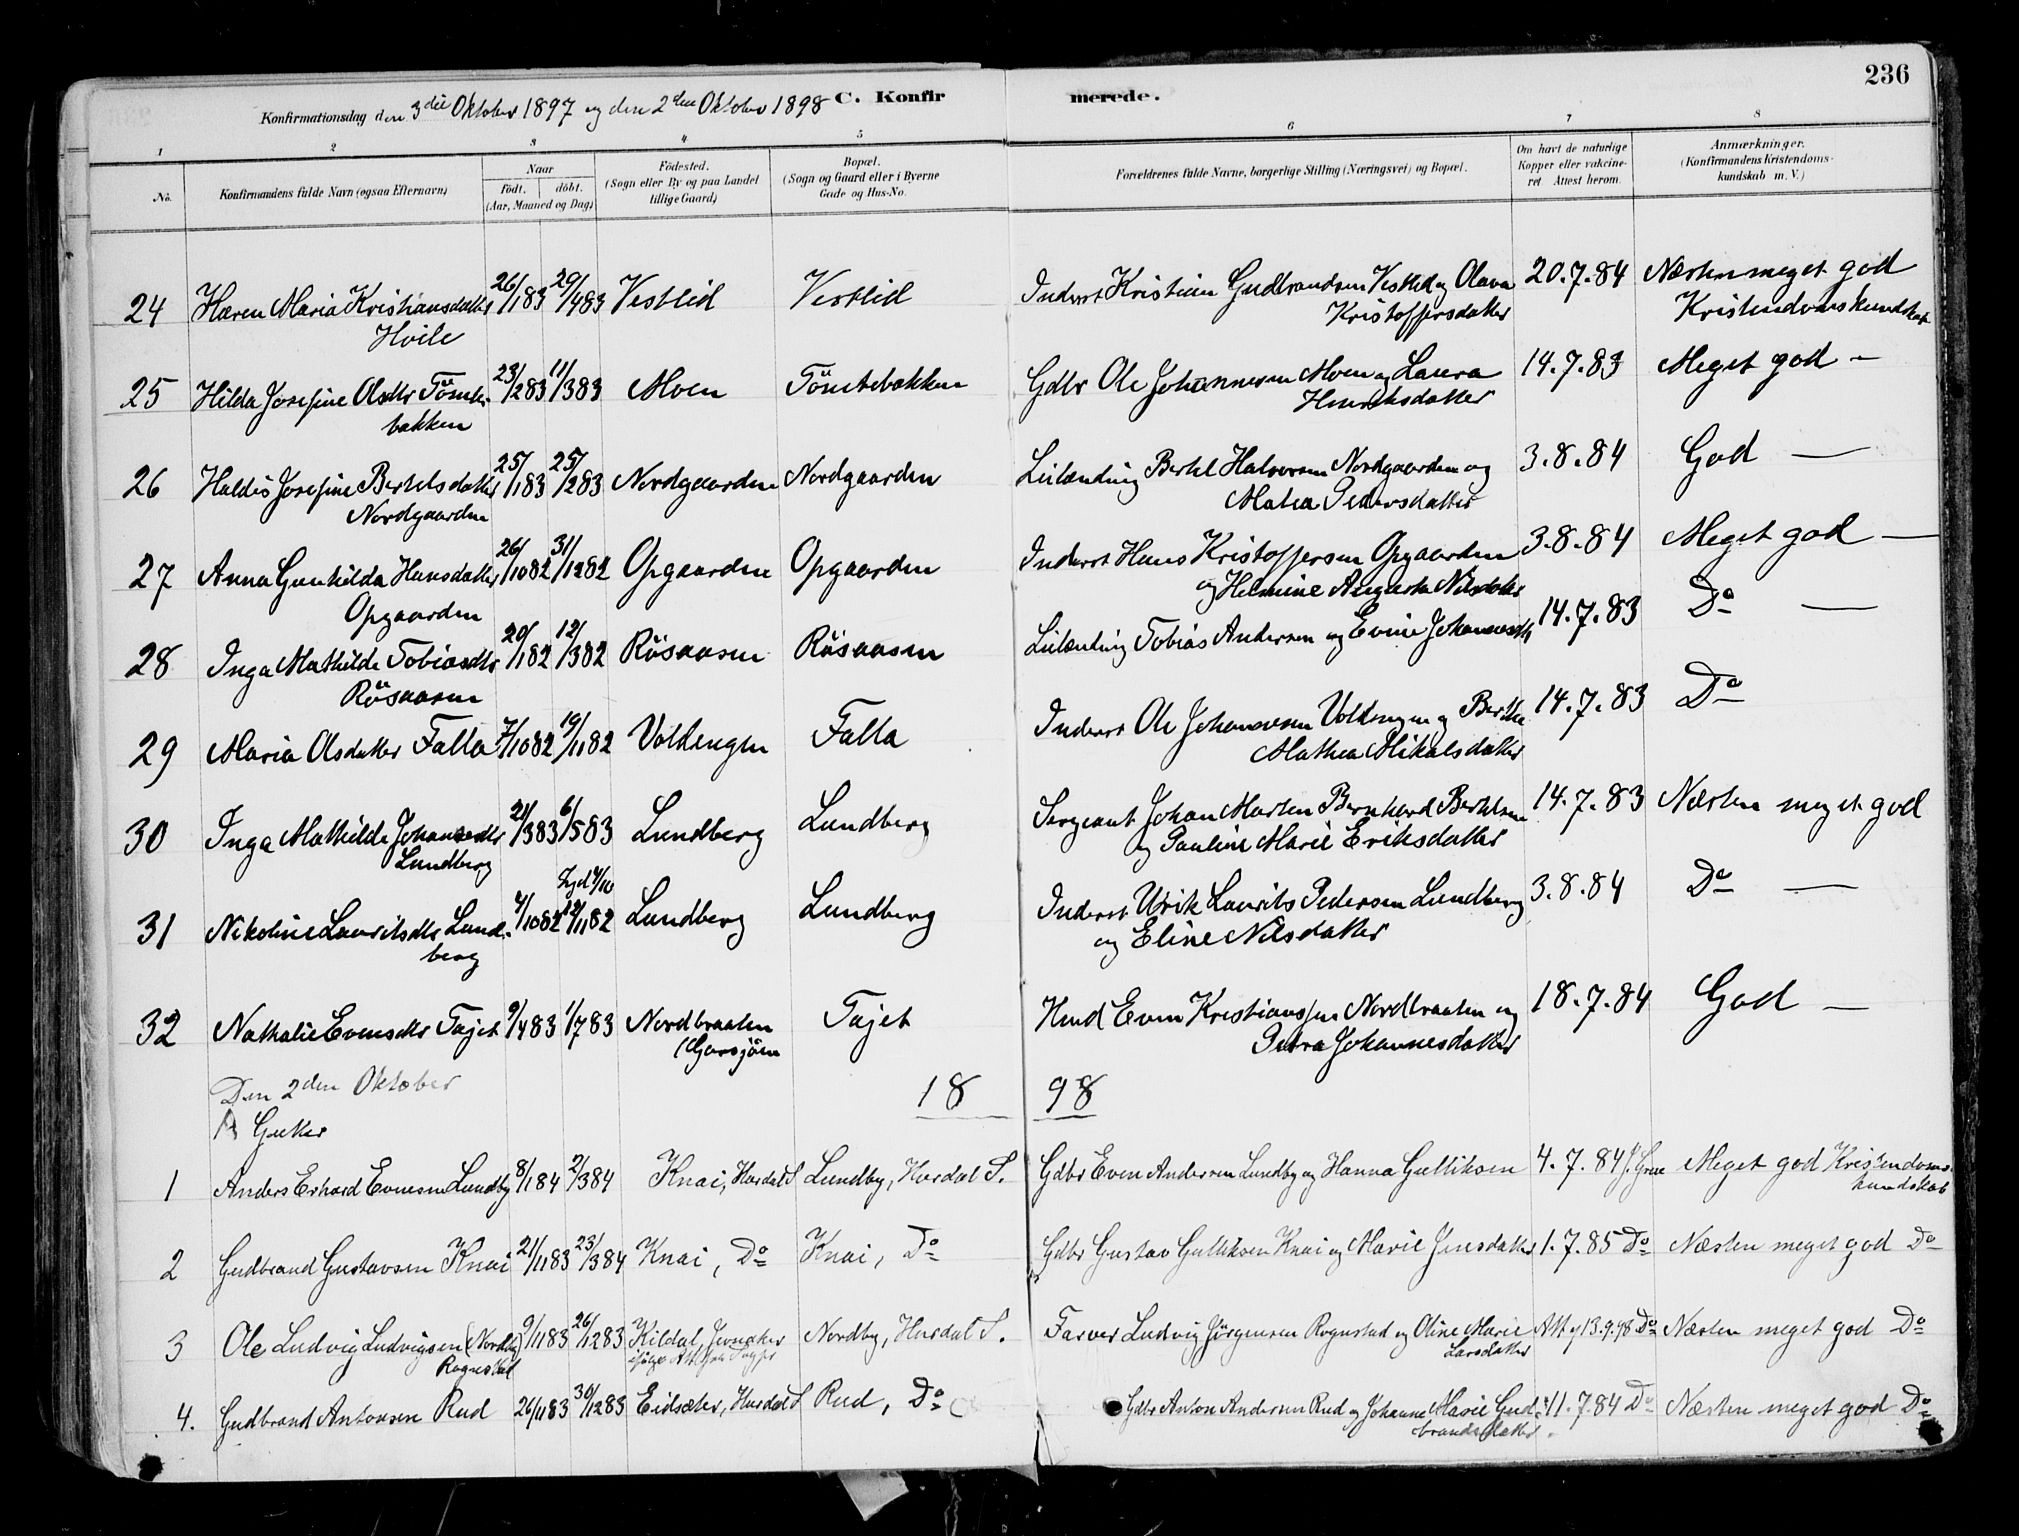 236
Konfirmationsdag den 3die Oktober 1897 og den 2den Oktober 1898 C. Konfirmerede.
1 2 3 4 5 6 7 8
No. Konfirmandens fulde Navn (ogsaa Efternavn) Naar født. døbt. (Aar, Maaned og Dag) Fødested. (Sogn eller By og paa Landet tillige Gaard) Bopæl. (Sogn og Gaard eller i Byerne Gade og Hus-No. Forældrenes fulde Navne, borgerlige Stilling (Næringsvei) og Bopæl. Om havt de naturlige Kopper eller vakcineret Attest herom. Anmærkninger. (Konfirmandens Kristendomskundskab m. V.)
24 Karen Maria Kristiansdatter 26/1 83 29/4 83 Vestlid Vestlid Inderst Kristian Gudbrandsen Vestlid og Olava 20.7.84 Næsten meget god
Hvile Kristoffersdatter Kristendomskundskab
25 Hilda Josefine Olsdtr Tömte- 23/2 83 11/3 83 Moen Tömtebakken Gdbr Ole Johannesen Moen og Laura 14.7.83 Meget god —
bakken Henriksdatter
26 Haldis Josefine Bertelsdatter 25/1 83 25/2 83 Nordgaarden Nordgaarden Leilænding Bertel Halvorsen Nordgaarden og 3.8.84 God —
Nordgaarden Matea Pedersdatter
27 Anna Gunhilda Hansdatter 26/10 82 31/12 82 Opgaarden Opgaarden Inderst Hans Kristoffersen Opgaarden 3.8.84 Meget god —
Opgaarden og Helmine Augusta Nilsdatter
28 Inga Mathilde Tobiasdtr 20/1 82 12/3 82 Rösaasen Rösaasen Leilænding Tobias Andersen og Evine Johannesdtr 14.7.83 Do —
Rösaasen
29 Maria Olsdatter Falla 7/10 82 19/11 82 Voldengen Falla Inderst Ole Johannesen Voldengen og Berthe 14.7.83 Do
Mathea Mikalsdatter
30 Inga Mathilde Johansdtr 21/3 83 6/5 83 Lundberg Lundberg Sergeant Johan Morten Bernhard Bertelsen 14.7.83 Næsten meget god
Lundberg og Pauline Marie Eriksdatter
31 Nikoline Lauritsdtr Lund- 7/10 82 12/11 82 Lundberg Lundberg Inderst Ulrik Laurits Pedersen Lundberg 3.8.84 Do —
berg og Eline Nilsdatter
32 Nathalie Evensdtr Tajet 9/4 83 1/7 83 Nordbraaten Tajet Hmd Even Kristiansen Nordbraaten og 18.7.84 God —
(Garsjöen Petra Johannesdatter
Den 2den Oktober 18 98
A Gutter
1 Anders Erhard Evensen Lundby 8/1 84 2/3 84 Knai, Hurdal S Lundby, Hurdal S. Gdbr Even Andersen Lundby og Hanna Gulliksen 4.7.84 Meget god Kristendoms-
kundskab
2 Gudbrand Gustavsen Knai 21/11 83 23/3 84 Knai, Do Knai, Do Gdbr Gustav Gulliksen Knai og Marie Jensdatter 1.7.85 Do Næsten meget god Do
3 Ole Ludvig Ludvigsen (Nordby) 9/11 83 26/12 83 Kildal, Jevnaker Nordby, Hurdal S. Farver Ludvig Jörgensen Rognstad og Oline Marie Att 13.9.98 Do Næsten meget god Do
Rognstad Larsdatter
4. Gudbrand Antonsen Rud 26/11 83 30/12 83 Eidsæter, Hurdal S Rud, Do Gdbr Anton Andersen Rud og Johanne Marie Gud- 11.7.84 Do Næsten meget god Do
brandsdatter